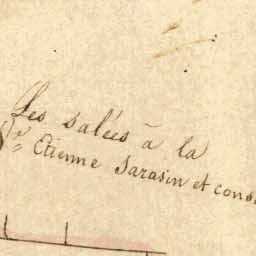 Les salées à la
Etienne Sarasin et cons